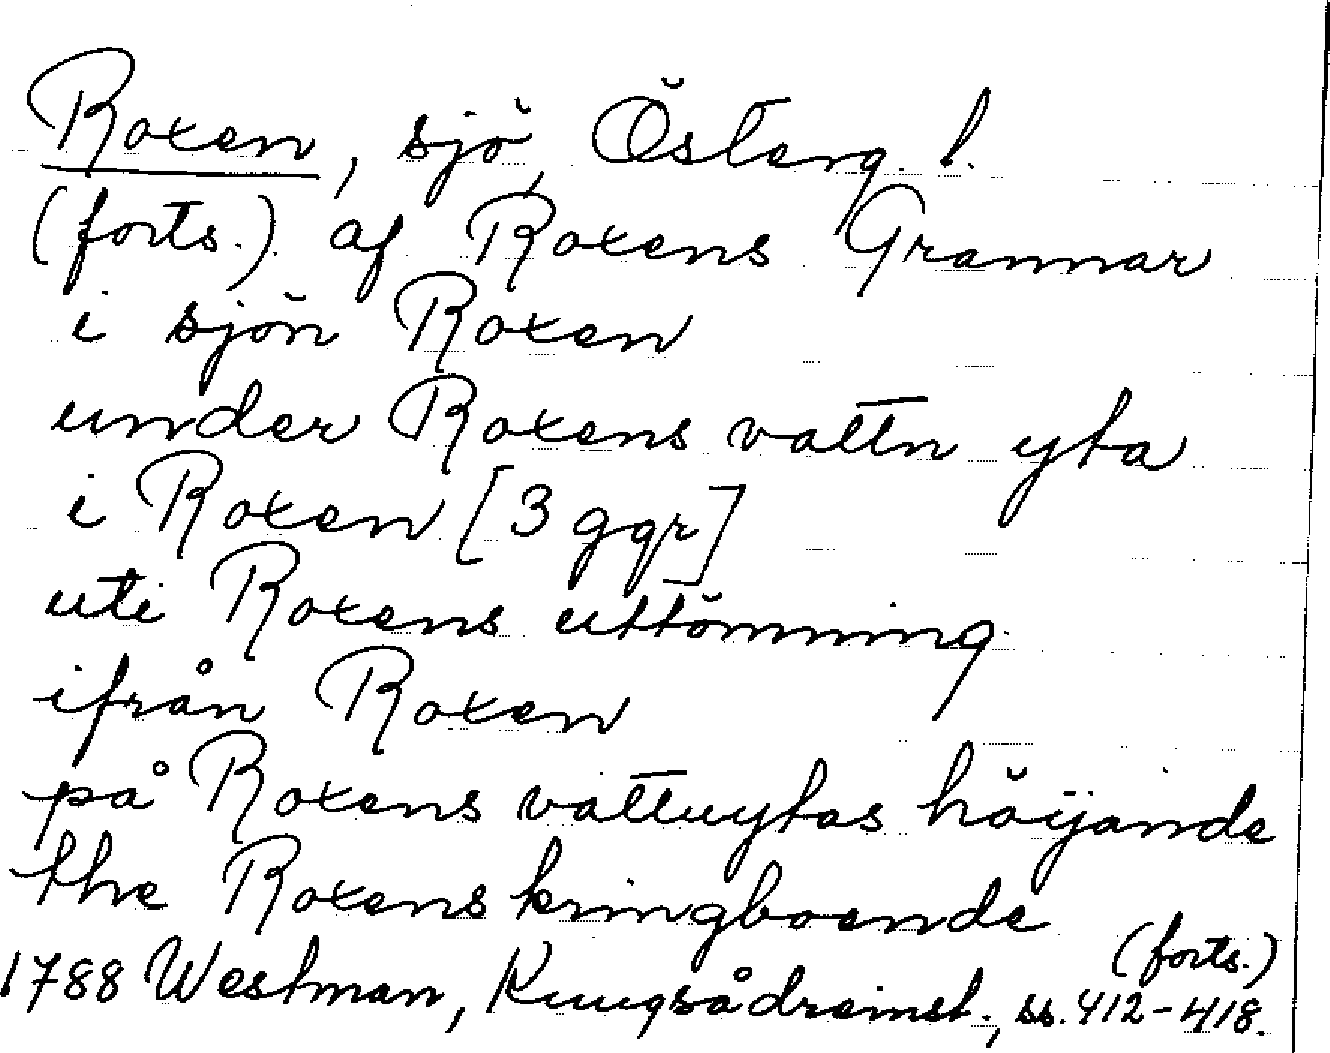 Roxen, sjö, Österg. l.
(forts.) af Roxens Grannar
i sjön Roxen
under Roxens vattn yta
i Roxen [3 ggr]
uti Roxens uttömning
ifrån Roxen
på Roxens vattuytas höijande
the Roxens kringboende
(forts.)
1788 Westman, Kuugsådreinst., ss. 412-418.